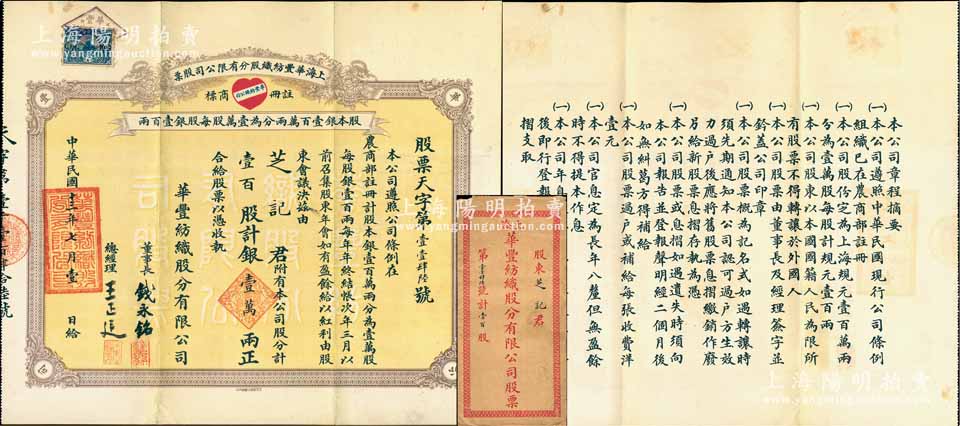 上海陽明拍賣
www.yangmingauction.com
華豐
上海華豐紡織股分有限公司股票
註冊
商標
股本銀壹百萬兩分為壹萬股每股銀壹百兩
股票天字第壹肆陸號
本公司遵照公司條例在
農商部註冊計股本銀壹百萬兩分為壹萬股
每股銀壹百兩每年年終結帳次年三月以
前召集股東年會如有盈餘給以紅利由股
東會議決茲由
芝記 君附有本公司股分計
壹百股計銀壹萬兩正
合給股票以憑收執
華豐紡織股分有限公司
董事長 錢永銘
總經理 王正廷
中華民國十三年七月壹日給
股東芝記君
上海華豐紡織股分有限公司股票
第壹肆陸號計壹百股
本公司章程摘要
(一)本公司遵照中華民國現行公司條例
組織已在農商部註冊
(一)本公司股份定為上海規元壹百萬兩
分為壹萬股每股計規元壹百兩
(一)本公司股東以本國國籍人民為限所
有股票不得轉讓於外國人
(一)本公司股票由董事長及經理簽字並
鈐蓋公司印章
(一)本公司股票概為記名式如遇轉讓時
須先期通知本公司認可過戶方生效
力過戶後應將舊股票息摺繳銷作廢
另給新股票息摺存執為憑
(一)本公司股票或息摺如遇遺失時須向
本公司報告並登報聲明經二個月後
如無糾葛方得補給
(一)本公司股票過戶或補給每張收費洋
壹元
(一)本公司官息定為長年八釐但無盈餘
時不得提本作息
(一)本公司年息
後即行登報
摺支取
上海陽明拍賣
www.yangmingauction.com